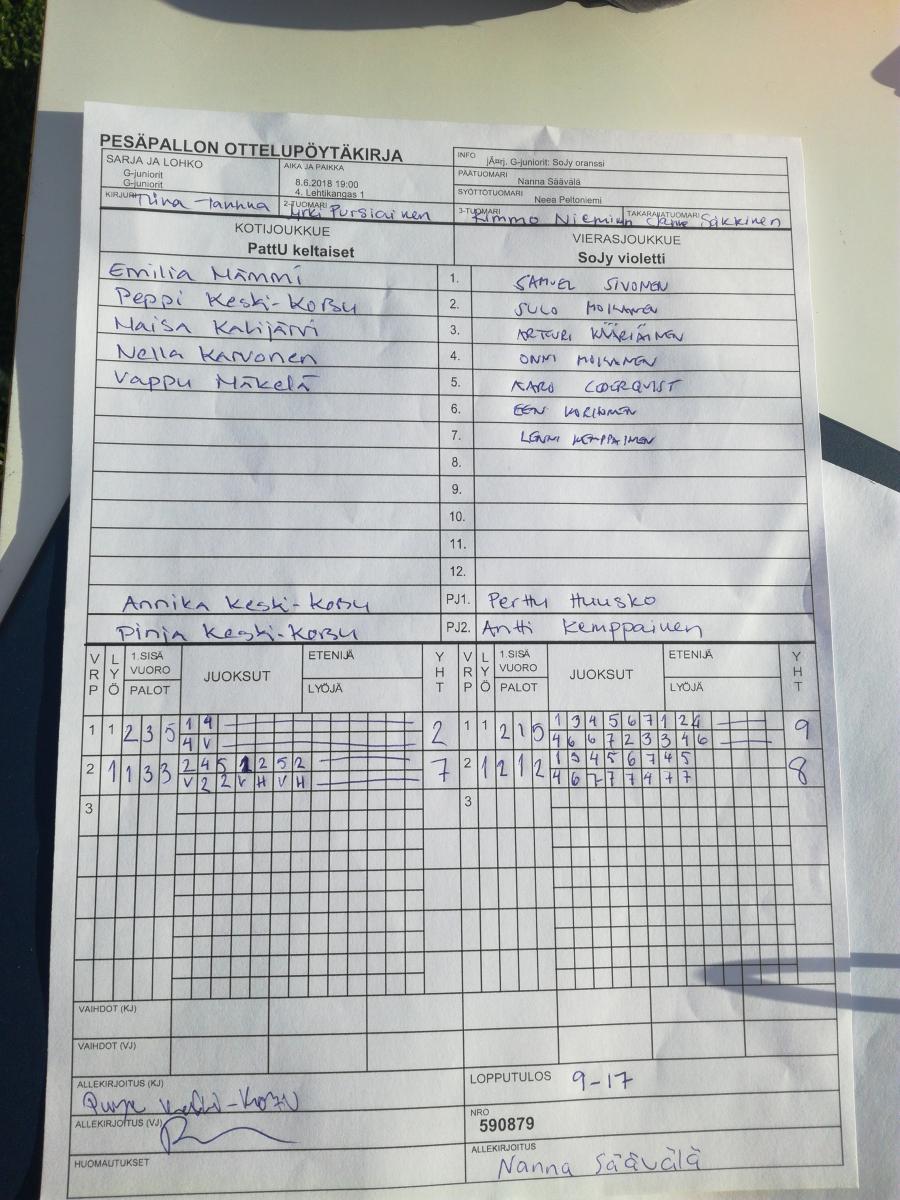 PESÄPALLON OTTELUPÖYTÄKIRJA
SARJA JA LOHKO
G-juniorit
G-juniorit
AIKA JA PAIKKA
8.6.2018 19:00
4. Lehtikangas 1
INFO jÃ¤rj. G-juniorit: SoJy oranssi
PÄÄTUOMARI
Nanna Säävälä
SYÖTTÖTUOMARI
Neea Peltoniemi
KIRJURI Tiina Tanhua
2-TUOMARI Jyrki Pursiainen
3-TUOMARI Kimmo Nieminen
TAKARAJATUOMARI Janne Säkkinen
KOTIJOUKKUE VIERASJOUKKUE
PattU keltaiset SoJy violetti
Emilia Mämmi 1. SAMUEL SIVONEN
Peppi Keski-Korsu 2. SULO MOILANEN
Maisa Kalijärvi 3. ARTTURI KÄÄRIÄINEN
Nella Karvonen 4. ONNI MOILANEN
Vappu Mäkelä 5. AARO
6. EEN
7. LENNI KEMPPAINEN
8.
9.
10.
11.
12.
Annika Keski-Korsu PJ1. Perttu Huusko
Pinja Keski-Korsu PJ2. Antti Kemppainen
VRP LYÖ 1.SISÄ VUORO PALOT JUOKSUT ETENIJÄ LYÖJÄ YHT VRP LYÖ 1.SISÄ VUORO PALOT JUOKSUT ETENIJÄ LYÖJÄ YHT
1 1 2 3 5 1 4 2 1 1 2 1 5 1 3 4 5 6 7 1 2 4 9
4 V 4 6 6 7 2 3 3 4 6
2 1 1 3 3 2 4 5 1 2 5 2 7 2 1 2 1 2 1 3 4 5 6 7 4 5 8
V 2 2 V H V H 4 6 7 7 7 4 7 7
3 3
VAIHDOT (KJ)
VAIHDOT (VJ)
ALLEKIRJOITUS (KJ) Pinja Keski-Korsu
LOPPUTULOS 9-17
ALLEKIRJOITUS (VJ)
NRO
590879
HUOMAUTUKSET
ALLEKIRJOITUS
Nanna Säävälä